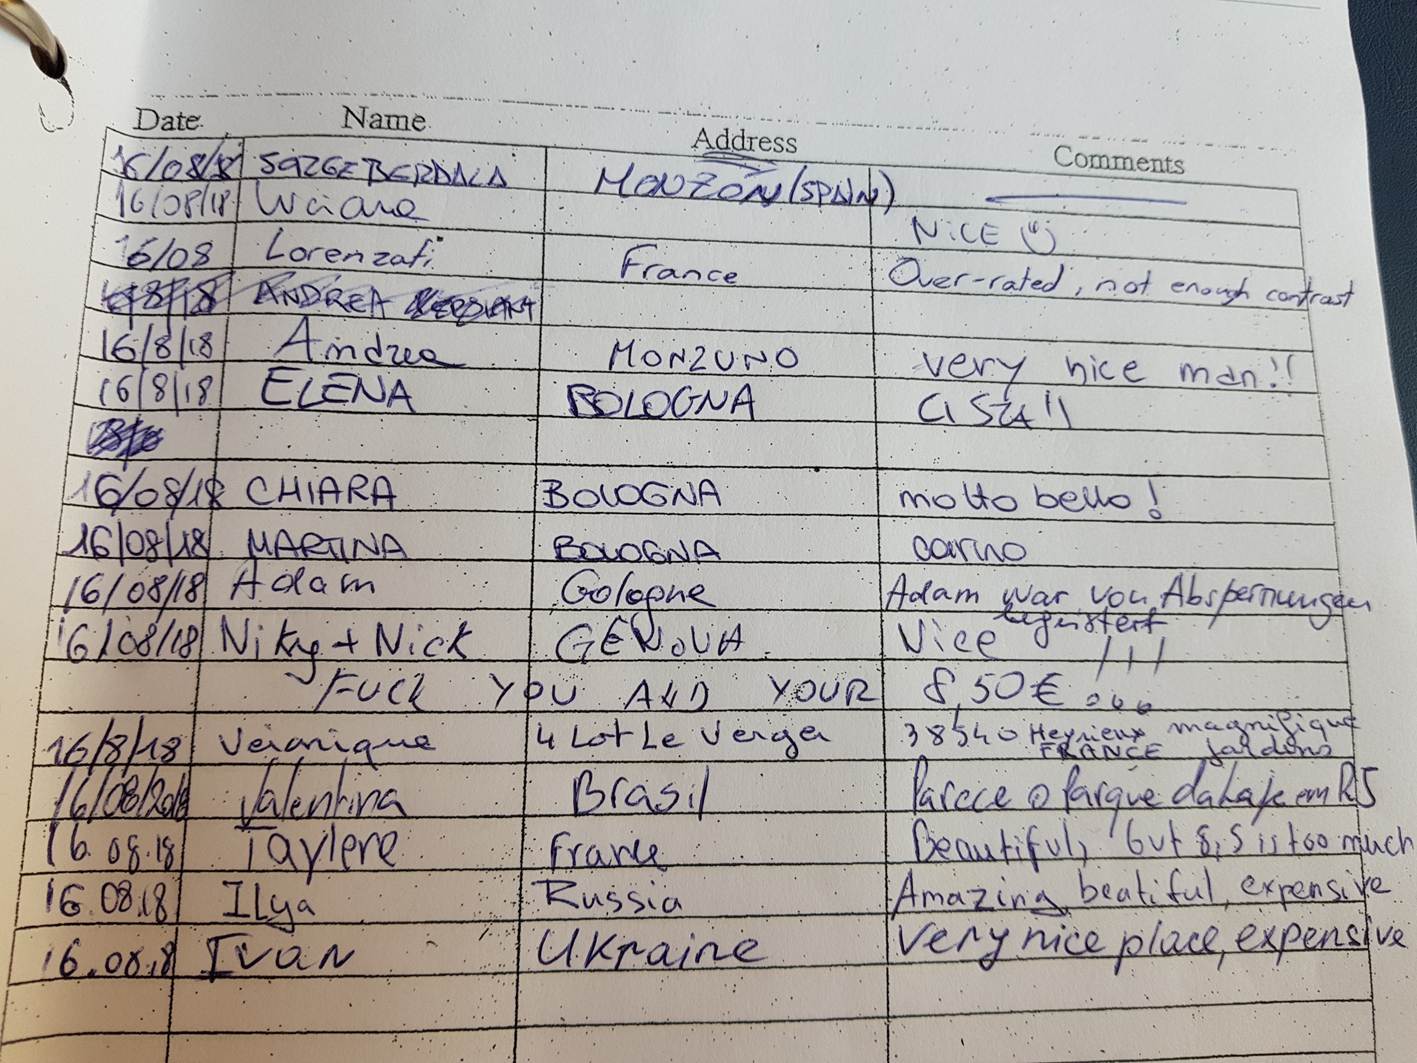 Date Name Address Comments
16/08/18 MONZÓN (SPAIN)
16/08/18 NiCE
16/08 Lorenzati France Over-rated, not enough contrast
ANDREA
16/8/18 Andrea MONZUNO very nice man!!
16/8/18 ELENA BOLOGNA
16/08/18 CHIARA BOLOGNA molto bello!
16/08/18 MARTINA BOLOGNA carino
16/08/18 Adam Cologne Adam war von Absperrungen
begeistert
16/08/18 Niky + Nick GENOVA Nice !!!
FUCK YOU AND YOUR 8,50€...
16/8/18 Veronique 4 Lot Le Verger 38540 Heyrieux magnifique
FRANCE jardins
16/08/2018 Valentina Brasil Parece o parque da em RS
16.08.18 Taylere France Beautiful, but 8,5 is too much
16.08.18 Ilya Russia Amazing, beatiful, expensive
16.08.18 Ivan Ukraine Very nice place, expensive